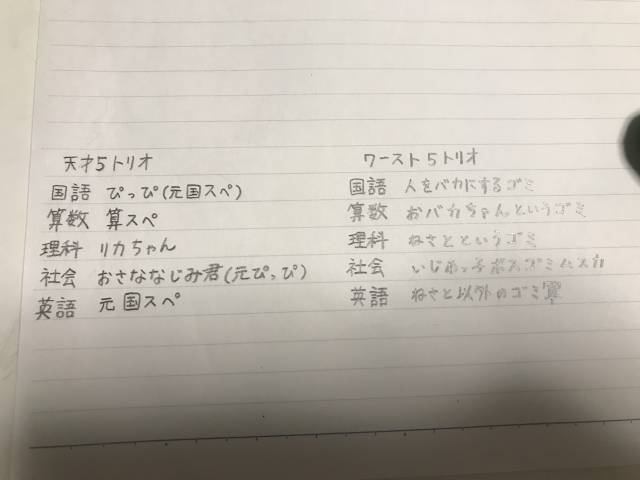 天才5トリオ
国語 ぴっぴ(元国スペ)
算数 算スペ
理科 リカちゃん
社会 おさななじみ君(元ぴっぴ)
英語 元国スペ
ワースト5トリオ
国語 人をバカにするゴミ
算数 おバカちゃんというゴミ
理科 ねさとというゴミ
社会 いじめっ子ボスゴミ
英語 ねさと以外のゴミ